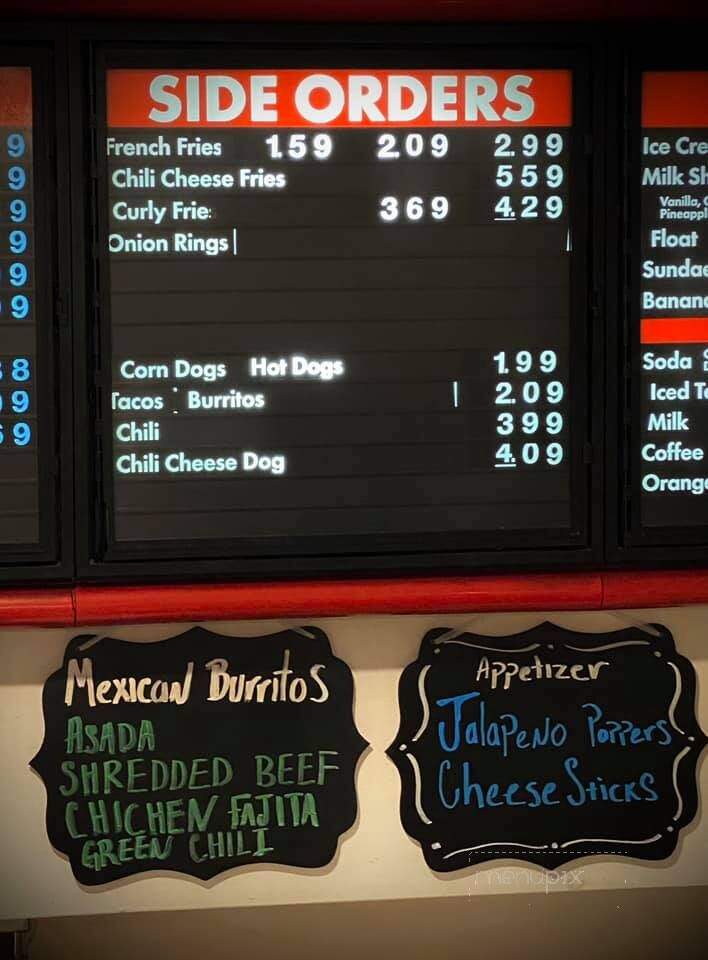 SIDE ORDERS
French Fries 1.59 2.09 2.99
Chili Cheese Fries 5 5 9
Curly Frie: 3 6 9 4.29
Onion Rings
Corn Dogs Hot Dogs 1.99
Tacos Burritos 2.09
Chili 3 9 9
Chili Cheese Dog 4.09
9
9
9
9
9
9
8
9
9
Ice Cre
Milk Sh
Vanilla, C
Pineappl
Float
Sundae
Banana
Soda
Iced Te
Milk
Coffee
Orange
Mexican Burritos
ASADA
SHREDDED BEEF
CHICHEN FAJITA
GREEN CHILI
Appetizer
Jalapeno Poppers
Cheese Sticks
menupix